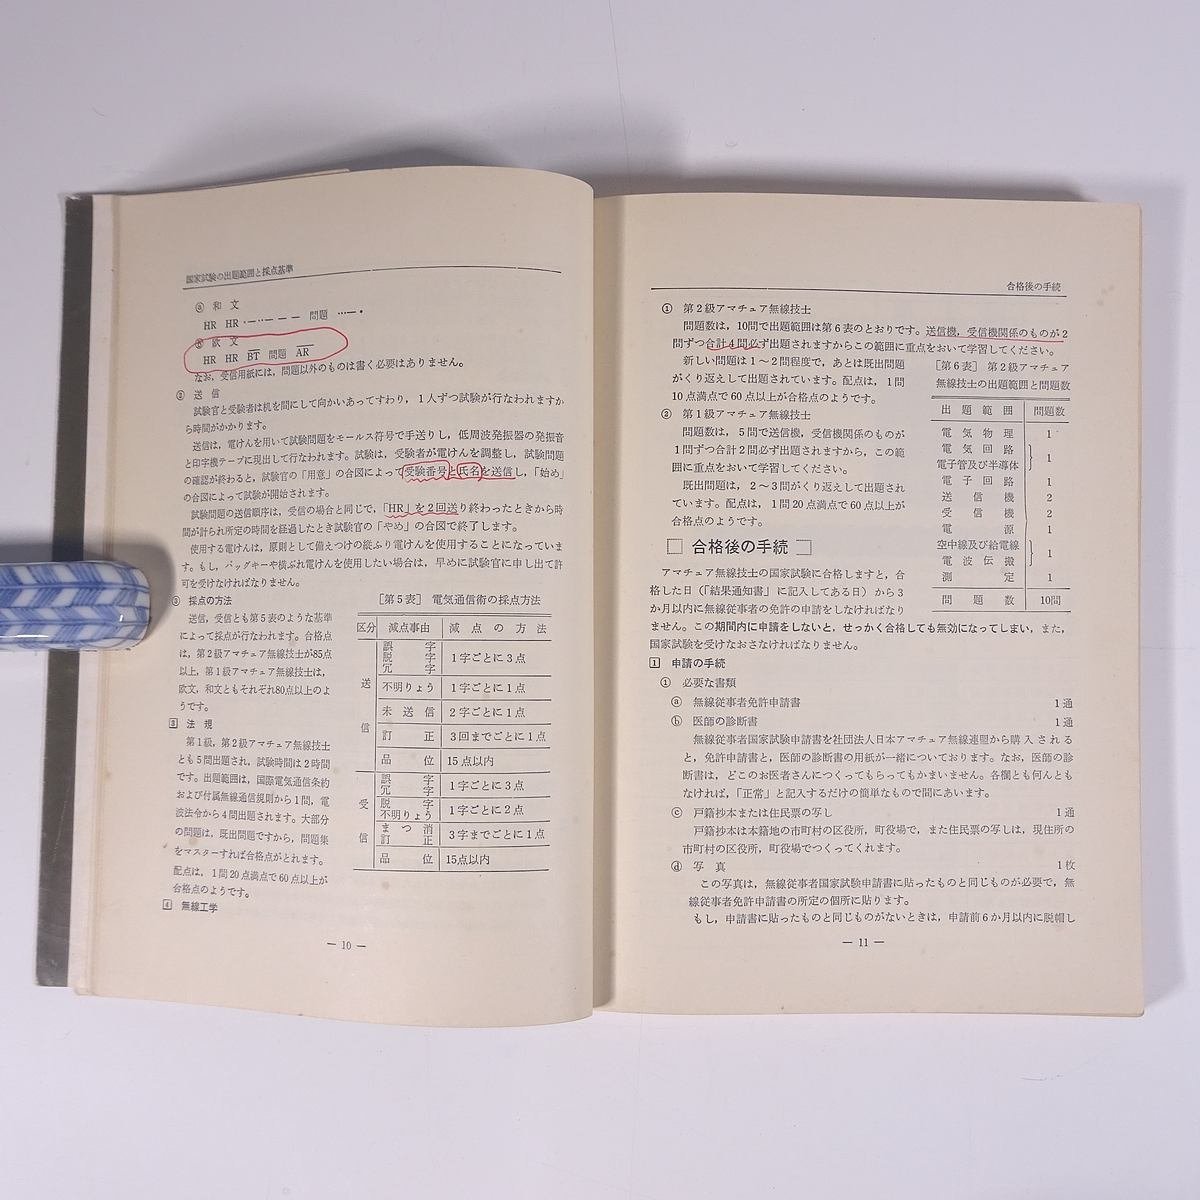 国家試験の出題範囲と採点基準
ⓐ 和 文
HR HR ・—・・— — — 問題 ・・・—・
ⓑ 欧 文
HR HR BT 問題 AR
なお，受信用紙には，問題以外のものは書く必要はありません。
② 送 信
試験官と受験者は机を間にして向かいあってすわり，1人ずつ試験が行なわれますか
ら時間がかかります。
送信は，電けんを用いて試験問題をモールス符号で手送りし，低周波発振器の発振音
と印字機テープに現出して行なわれます。試験は，受験者が電けんを調整し，試験問題
の確認が終わると，試験官の「用意」の合図によって受験番号と氏名を送信し，「始め」
の合図によって試験が開始されます。
試験問題の送信順序は，受信の場合と同じで，「HR」を2回送り終わったときから時
間が計られ所定の時間を経過したとき試験官の「やめ」の合図で終了します。
使用する電けんは，原則として備えつけの縦ふり電けんを使用することになっていま
す。もし，バッグキーや横ぶれ電けんを使用したい場合は，早めに試験官に申し出て許
可を受けなければなりません。
③ 採点の方法
送信，受信とも第5表のような基準
によって採点が行なわれます。合格点
は，第2級アマチュア無線技士が85点
以上，第1級アマチュア無線技士は，
欧文，和文ともそれぞれ80点以上のよ
うです。
3 法 規
第1級，第2級アマチュア無線技士
とも5問出題され，試験時間は2時間
です。出題範囲は，国際電気通信条約
および付属無線通信規則から1問，電
波法令から4問出題されます。大部分
の問題は，既出問題ですから，問題集
をマスターすれば合格点がとれます。
配点は，1問20点満点で60点以上が
合格点のようです。
4 無線工学
［第5表］ 電気通信術の採点方法
区分 減点事由 減 点 の 方 法
送信
誤字 脱字 冗字 1字ごとに3点
不明りょう 1字ごとに1点
未 送 信 2字ごとに1点
訂 正 3回までごとに1点
品 位 15点以内
受信
誤字 冗字 1字ごとに3点
脱字 不明りょう 1字ごとに2点
まつ消 訂正 3字までごとに1点
品 位 15点以内
— 10 —
合格後の手続
① 第2級アマチュア無線技士
問題数は，10問で出題範囲は第6表のとおりです。送信機，受信機関係のものが2
問ずつ合計4問必ず出題されますからこの範囲に重点をおいて学習してください。
新しい問題は1～2問程度で，あとは既出問題
がくり返えして出題されています。配点は，1問
10点満点で60点以上が合格点のようです。
② 第1級アマチュア無線技士
問題数は，5問で送信機，受信機関係のものが
1問ずつ合計2問必ず出題されますから，この範
囲に重点をおいて学習してください。
既出問題は，2～3問がくり返えして出題され
ています。配点は，1問20点満点で60点以上が
合格点のようです。
［第6表］ 第2級アマチュア
無線技士の出題範囲と問題数
出 題 範 囲 問題数
電 気 物 理 1
電 気 回 路
電子管及び半導体 1
電 子 回 路 1
送 信 機 2
受 信 機 2
電 源 1
空中線及び給電線
電 波 伝 搬 1
測 定 1
問 題 数 10問
合格後の手続
アマチュア無線技士の国家試験に合格しますと，合
格した日（「結果通知書」に記入してある日）から3
か月以内に無線従事者の免許の申請をしなければなり
ません。この期間内に申請をしないと，せっかく合格しても無効になってしまい，また，
国家試験を受けなおさなければなりません。
1 申請の手続
① 必要な書類
ⓐ 無線従事者免許申請書 1通
ⓑ 医師の診断書 1通
無線従事者国家試験申請書を社団法人日本アマチュア無線連盟から購入される
と，免許申請書と，医師の診断書の用紙が一緒についております。なお，医師の診
断書は，どこのお医者さんにつくってもらってもかまいません。各欄とも何んとも
なければ，「正常」と記入するだけの簡単なもので間にあいます。
ⓒ 戸籍抄本または住民票の写し 1通
戸籍抄本は本籍地の市町村の区役所，町役場で，また住民票の写しは，現住所の
市町村の区役所，町役場でつくってくれます。
ⓓ 写 真 1枚
この写真は，無線従事者国家試験申請書に貼ったものと同じものが必要で，無
線従事者免許申請書の所定の個所に貼ります。
もし，申請書に貼ったものと同じものがないときは，申請前6か月以内に脱帽し
— 11 —